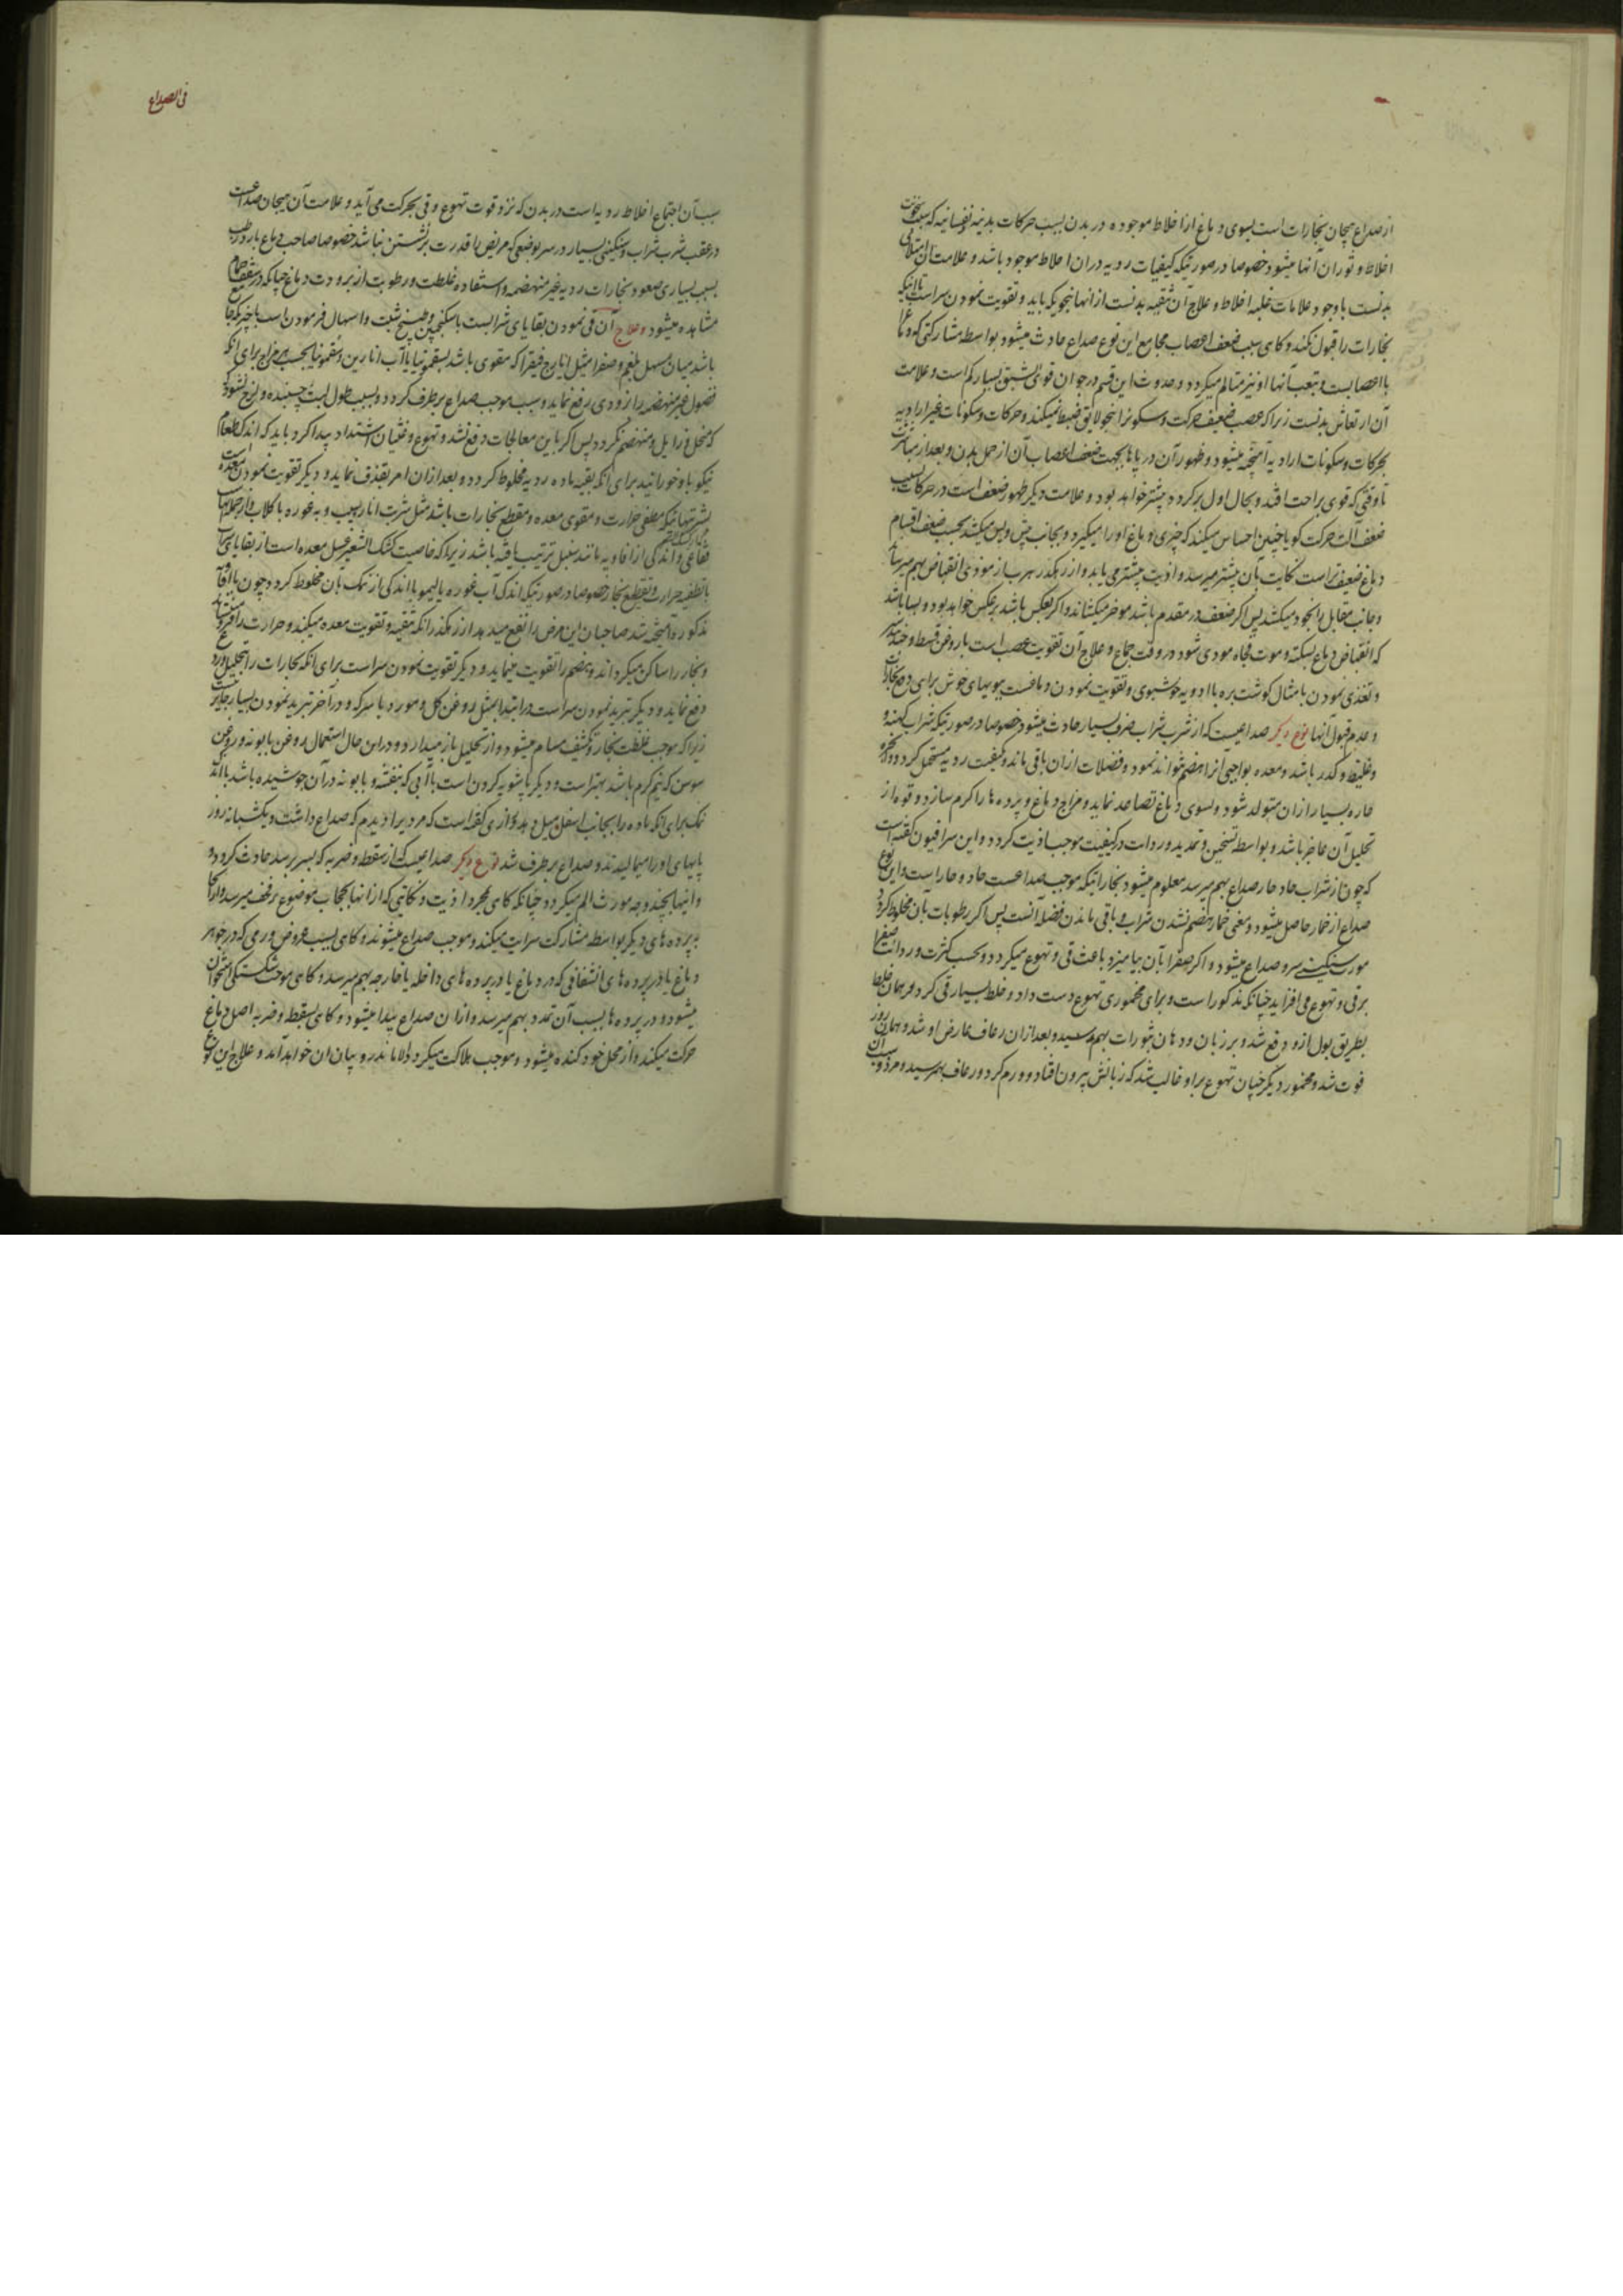 از صداع هیجان بخارات است بسوی دماغ از اخلاط موجوده در بدن بسبب حرکات بدنیه نفسانیه که سبب سخونت
اخلاط و ثوران آنها میشود خصوصا در صورتیکه کیفیات ردیه در ان اخلاط موجود باشد و علامت آن امتلای
بدنست با وجود علامات غلبه اخلاط و علاج آن تنقیه بدنست از آنها بنحویکه باید و تقویت نمودن سر است تا آنکه
بخارات را قبول نکند و کاهی بسبب ضعف اعصاب مجامع این نوع صداع حادث میشود بواسطه مشارکتی که دماغ را
با اعصابست و بتعب آنها او نیز متالم میکردد و حدوث این قسم در جوان قوی الشبق بسیار کم است و علامت
آن ارتعاش بدنست زیرا که عصب ضعیف حرکت و سکون را بنحو لایق ضبط نمیکند و حرکات و سکونات غیر ارادیه
بحرکات و سکونات ارادیه آمیخته میشود و ظهور آن در پاها بجهت ضعف اعصاب آن از حمل بدن و بعد از مباشرت
تا وقتی که قوی براحت افتد و بحال اول برکردد بیشتر خواهد بود و علامت دیکر ظهور ضعف است در حرکات بسبب
ضعف آلت حرکت کویا چنین احساس میکند که چیزی دماغ او را میکیرد و بجانب پیش و پس میکشد بحسب ضعف اقسام
دماغ ضعیف‌تر است نکایت بآن بیشتر میرسد و اذیت بیشتر می‌یابد و از رهکذر هرب از موذی انقباض بهم میرساند
و جانب مقابل را بخود میکشد پس اکر ضعف در مقدم باشد موخر میکشاند و اکر بعکس باشد برعکس خواهد بود و بسا باشد
که انقباض دماغ بسکته و موت فجاه مودی شود در وقت جماع و علاج آن تقویت عصب است بروغن قسط و جندبیدستر
و تغذی نمودن بامثال کوشت بره با ادویه خوشبوی و تقویت نمودن دماغست ببویهای خوش برای دفع بخارات
و عدم قبول آنها نوع دیکر صداعیست که از شرب شراب صرف بسیار حادث میشود خصوصا در صورتیکه شراب کهنه و
غلیظ و کدر باشد و معده بواجبی آنرا هضم نتواند نمود و فضلات از ان باقی ماند و بکیفیت ردیه مستحیل کردد و ابخره
حاره بسیار از ان متولد شود و بسوی دماغ تصاعد نماید و مزاج دماغ و پرده‌ها را کرم سازد و قوه از
تحلیل آن عاجز باشد و بواسطه تسخین و تمدید و ردائت در کیفیت موجب اذیت کردد و این سرافیون کفته است
که چون از شراب حاد حار صداع بهم میرسد معلوم میشود بخاراتیکه موجب صداعست حاد و حار است و این نوع
صداع از خمار حاصل میشود و معنی خمار هضم نشدن شراب و باقی ماندن فضله آنست پس اکر رطوبات بآن مخلوط کردد
مورث سنکینی سر و صداع میشود و اکر صفرا بآن بیامیزد باعث قی و تهوع میکردد و بحسب کثرت و ردائت صفرا
بر قی و تهوع می‌افزاید چنانکه مذکور است و برای مخموری تهوع دست داد و خلط بسیار قی کرد و هر همان خلط
بطریق بول از و دفع شد و بر زبان و دهان بثورات بهم رسید و بعد از ان رعاف عارض او شد و همان روز
فوت شد و مخمور دیکر چنان تهوع بر او غالب شد که زبانش بیرون افتاد و ورم کرد و رعاف بهمرسید و مرد و سبب آن
فی الصداع
سبب آن اجتماع اخلاط ردیه است در بدن که نزد قوت تهوع و قی بحرکت می‌آید و علامت آن هیجان صداعست
در عقب شرب شراب و سنکینی بسیار در سر بوضعی که مریض را قدرت بر نشستن نباشد خصوصا صاحب دماغ بارد رطب
بسبب بسیاری صعود بخارات ردیه غیر منهضمه و استفاده غلظت و رطوبت از برودت دماغ چنانکه در سقف حمام
مشاهده میشود و علاج آن قی نمودن بقایای شرابست باسکنجبین و طبیخ شبت و اسهال فرمودن است با چیزی که جامع
باشد میان مسهل بلغم و صفرا مثل ایارج فیقرا که مقوی باشد بسقمونیا یا آب انارین و سقمونیا بحسب مزاج برای آنکه
فضول غیر منهضمه را زودی رفع نماید و سبب موجب صداع برطرف کردد و بسبب طول لبث چسبنده و لزج نشود
که منحل و زایل و منهضم نکردد پس اکر باین معالجات دفع نشد و تهوع و غثیان اشتداد پیدا کرد باید که اندک طعام
نیکو باو خورانید برای آنکه بقیه ماده ردیه مخلوط کردد و بعد از ان امر بقذف نماید و دیکر تقویت نمودن معده است
بشربتهائیکه مطفی حرارت و مقوی معده و مقطع بخارات باشد مثل شربت انار و سیب و به و غوره با کلاب و از جمله آنها
فقاعی و اندکی از افاویه مانند سنبل ترتیب یافته باشد زیرا که خاصیت کشک الشعیر غسل معده است از بقایای شراب
با تطفیه حرارت و تقطیع بخار خصوصا در صورتیکه اندک آب غوره یا لیمو با اندکی از نمک بآن مخلوط کردد و چون با افاویه
مذکوره آمیخته شد صاحبان این مرض را نفع میدهد از رهکذر آنکه تنقیه و تقویت معده میکند و حرارت را فرو می‌نشاند
و بخار را ساکن میکرداند و هضم را تقویت مینماید و دیکر تقویت نمودن سر است برای آنکه بخارات را بتحلیل و ردع
دفع نماید و دیکر تبرید نمودن سر است در ابتدا بمثل روغن کل و مورد با سرکه و در آخر تبرید نمودن بسیار جایز نیست
زیرا که موجب غلظت بخار و تکثیف مسام میشود و از تحلیل باز میدارد و در این حال استعمال روغن بابونه و روغن
سوسن که نیم کرم باشد بهتر است و دیکر پاشویه کردن است با آبی که بنفشه و بابونه در آن جوشیده باشد با اندک
نمک برای آنکه ماده را بجانب اسفل میل دهد و رازی کفته است که مردیرا دیدم که صداع داشت و یکشبانه روز
پایهای او را میمالیدند و صداع برطرف شد نوع دیکر صداعیست که از سقطه و ضربه که بسر رسد حادث کردد
و اینها بچند وجه مورث الم میکردد چنانکه کاهی بمجرد اذیت و نکایتی که از آنها بحجاب موضوع بر قحف میرسد و از آنجا
بپرده‌های دیکر بواسطه مشارکت سرایت میکند و موجب صداع میشوند و کاهی بسبب عروض ورمی که در جوهر
دماغ یا در پرده‌های داخله یا خارجه بهم میرسد و کاهی موجب شکستکی استخوان
میشود و در پرده‌ها بسبب آن تمدد بهم میرسد و از ان صداع پیدا میشود و کاهی بسقطه و ضربه اصل دماغ
حرکت میکند و از محل خود کنده میشود و موجب هلاکت میکردد الا ما ندر و بیان ان خواهد آمد و علاج این نوع